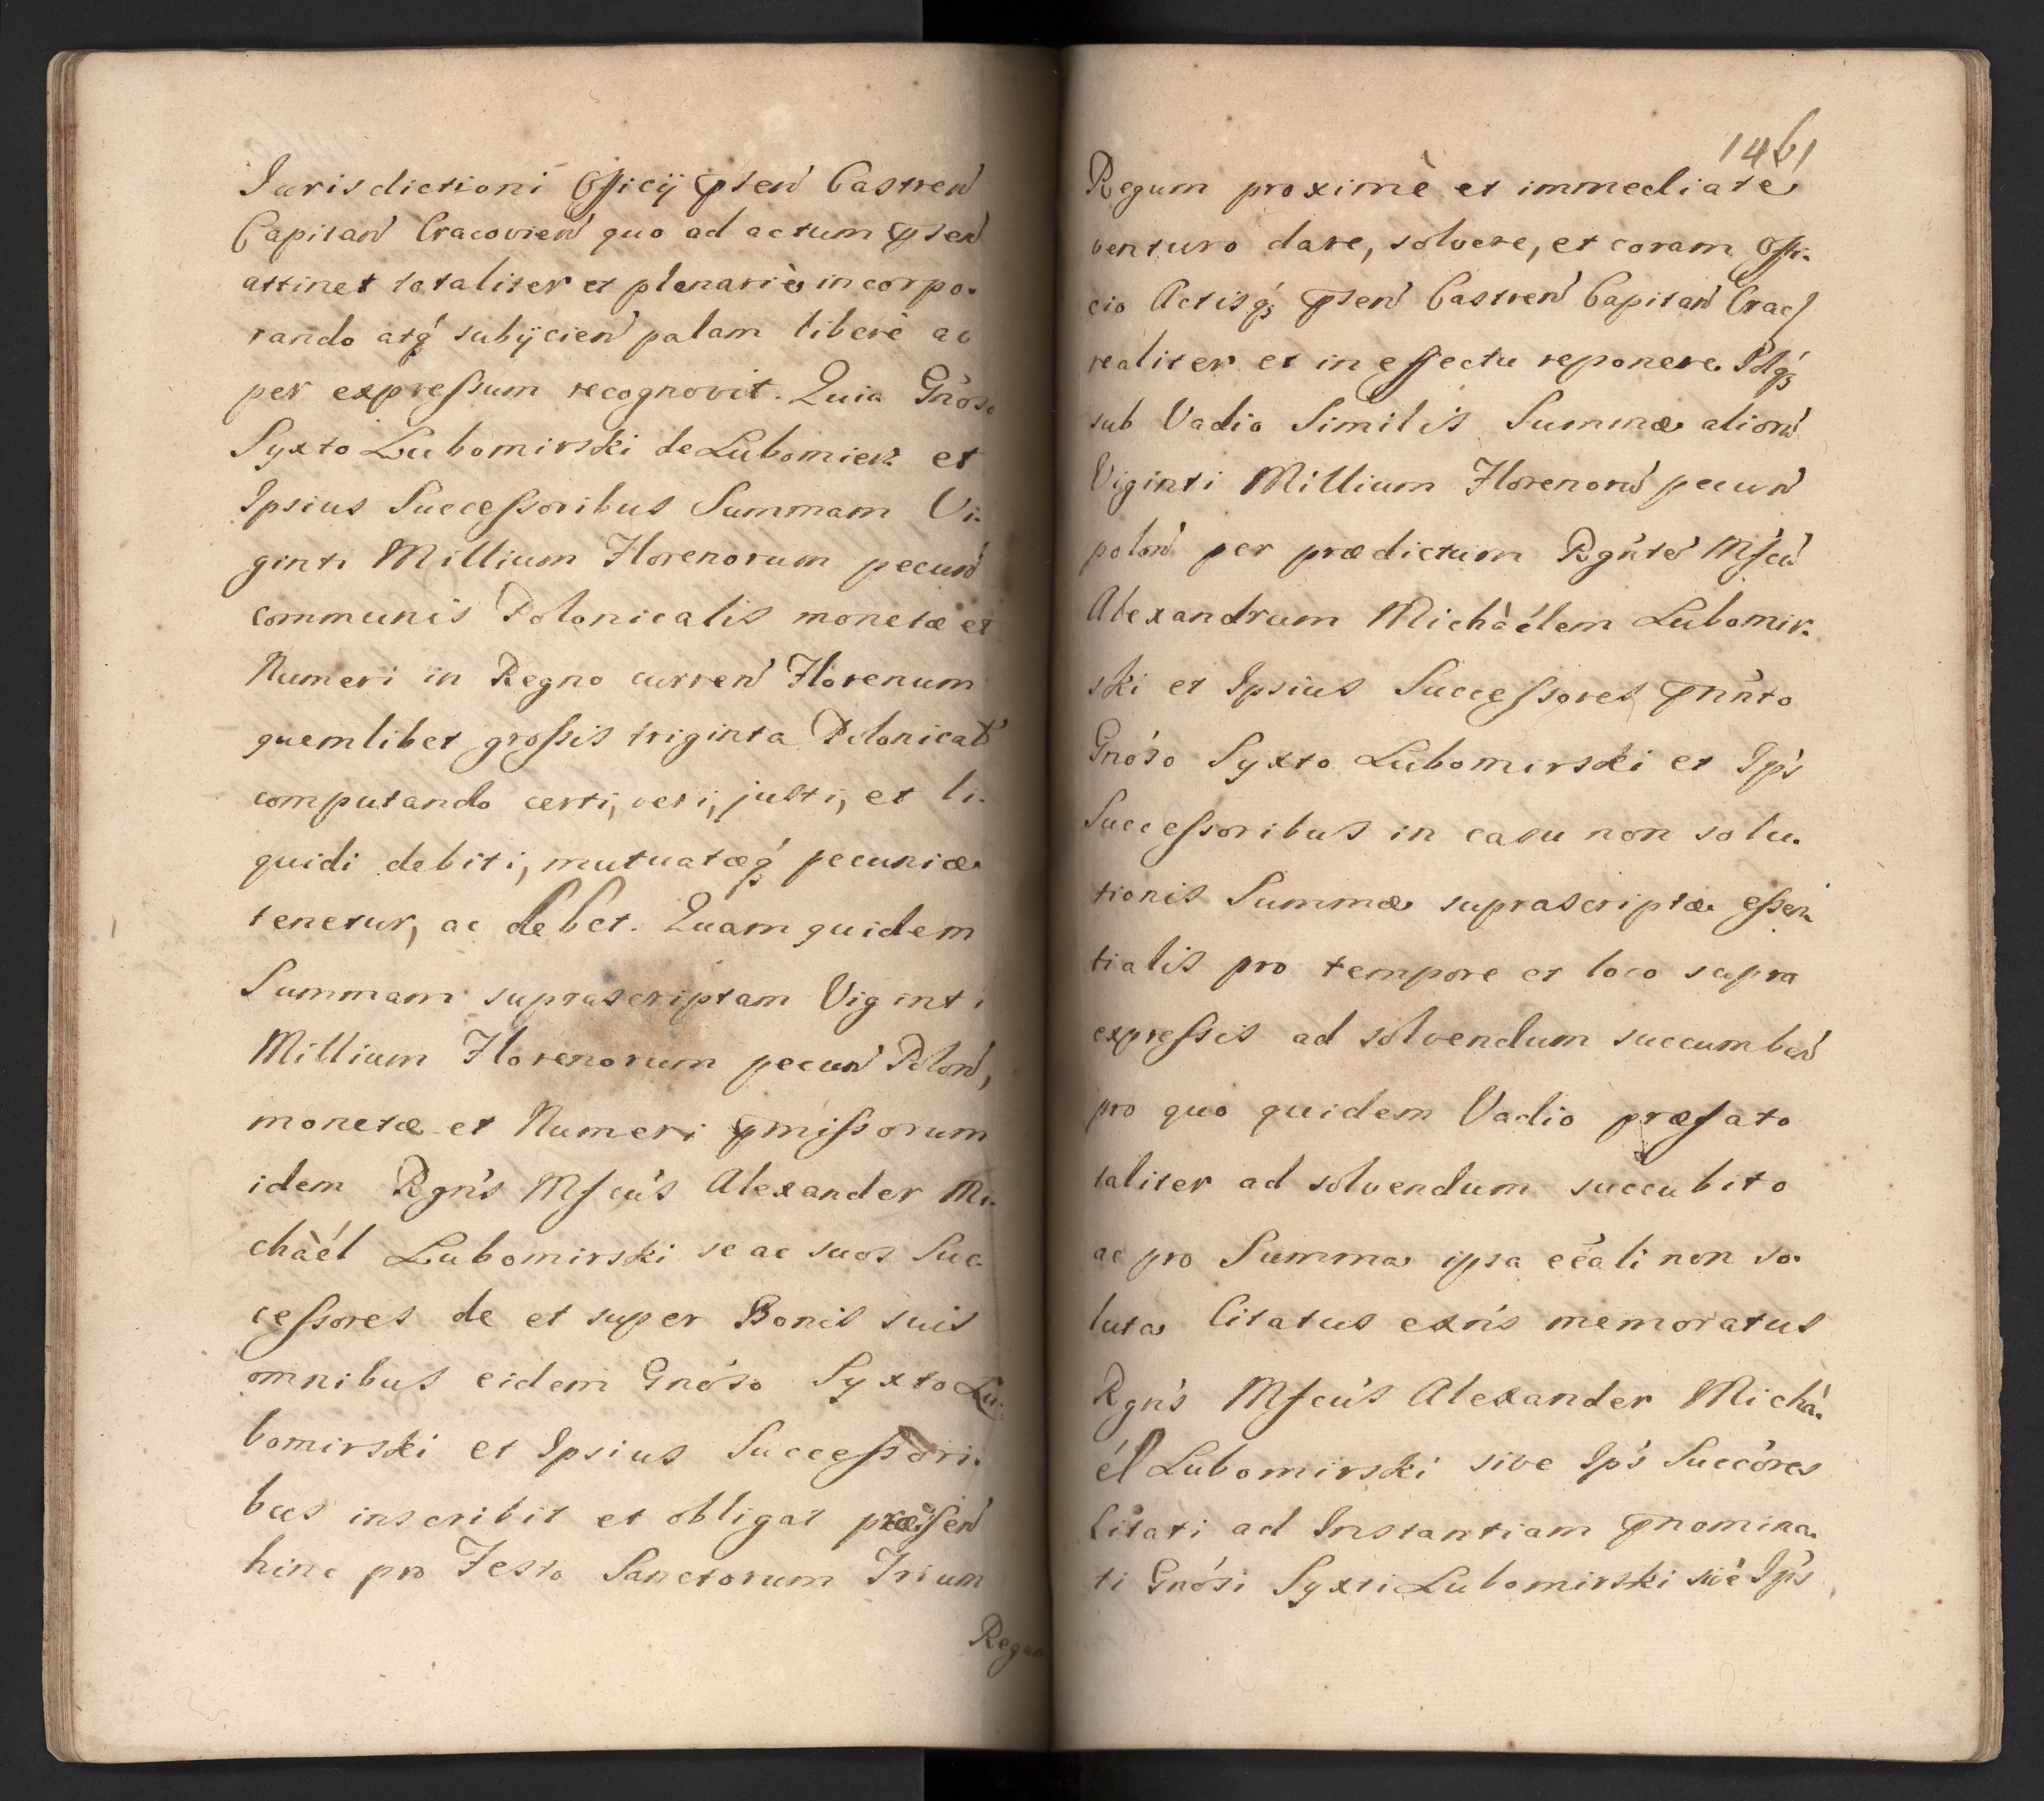 Jurisdictioni Officij pñten Castren
Capitan Cracovien quo ad actum pñten
attinet totaliter et plenariè incorpo-
rando atq́ subijcien palam liberè ac
per expreſsum recognovit. Quia Gñoso
Syxto Lubomirski de Lubomierz et
Ipsius Succeſsoribus Summam Vi-
ginti Millium Florenorum pecun
communis Polonicalis monetæ et
Numeri in Regno curren Florenum
quemlibet groſsis triginta Polonicał
computando certi, veri, justi, et li-
quidi debiti, mutuatæq́ pecuniæ
tenetur, ac debet. Quam quidem
Summam suprascriptam Viginti
Millium Florenorum pecun Polon,
monetæ et Numeri pmiſsorum
idem Rgńs Mfcus Alexander Mi-
chàél Lubomirski se ac suos Suc
ceſsores de et super Bonis suis
omnibus eidem Gnóso Syxto Lu-
bomirski et Ipsius Succeſsori-
bus inscribit et obligat præsen
hinc pro Festo Sanctorum Trium
Regum
1461
Regum proximè et immediatè
venturo dare, solvere, et coram Offi-
cio Actisq́ pñten Castren Capitan Crac
realiter et in effectu reponere Idq́
sub Vadio Similis Summæ alion
Viginti Millium Florenorũ pecun
polon per prædictum Rgńtẽ Mfcũ
Alexandrum Michàélem Lubomir-
ski et Ipsius Succeſsores pñńto
Gnóso Syxto Lubomirski et Ips
Succeſsoribus in casu non solu-
tionis Summæ suprascriptæ eſsen-
tialis pro tempore et loco supra
expreſsis ad solvendum succumben
pro quo quidem Vadio præfato
taliter ad solvendum succubito
ac pro Summa ipsa ééali non so-
luta Citatus exńs memoratus
Rgńs Mfcus Alexander Michà-
él Lubomirski sive Ips Succóres
Citati ad Instantiam pnomina-
ti Gnósi Syxti Lubomirski sivè Ips